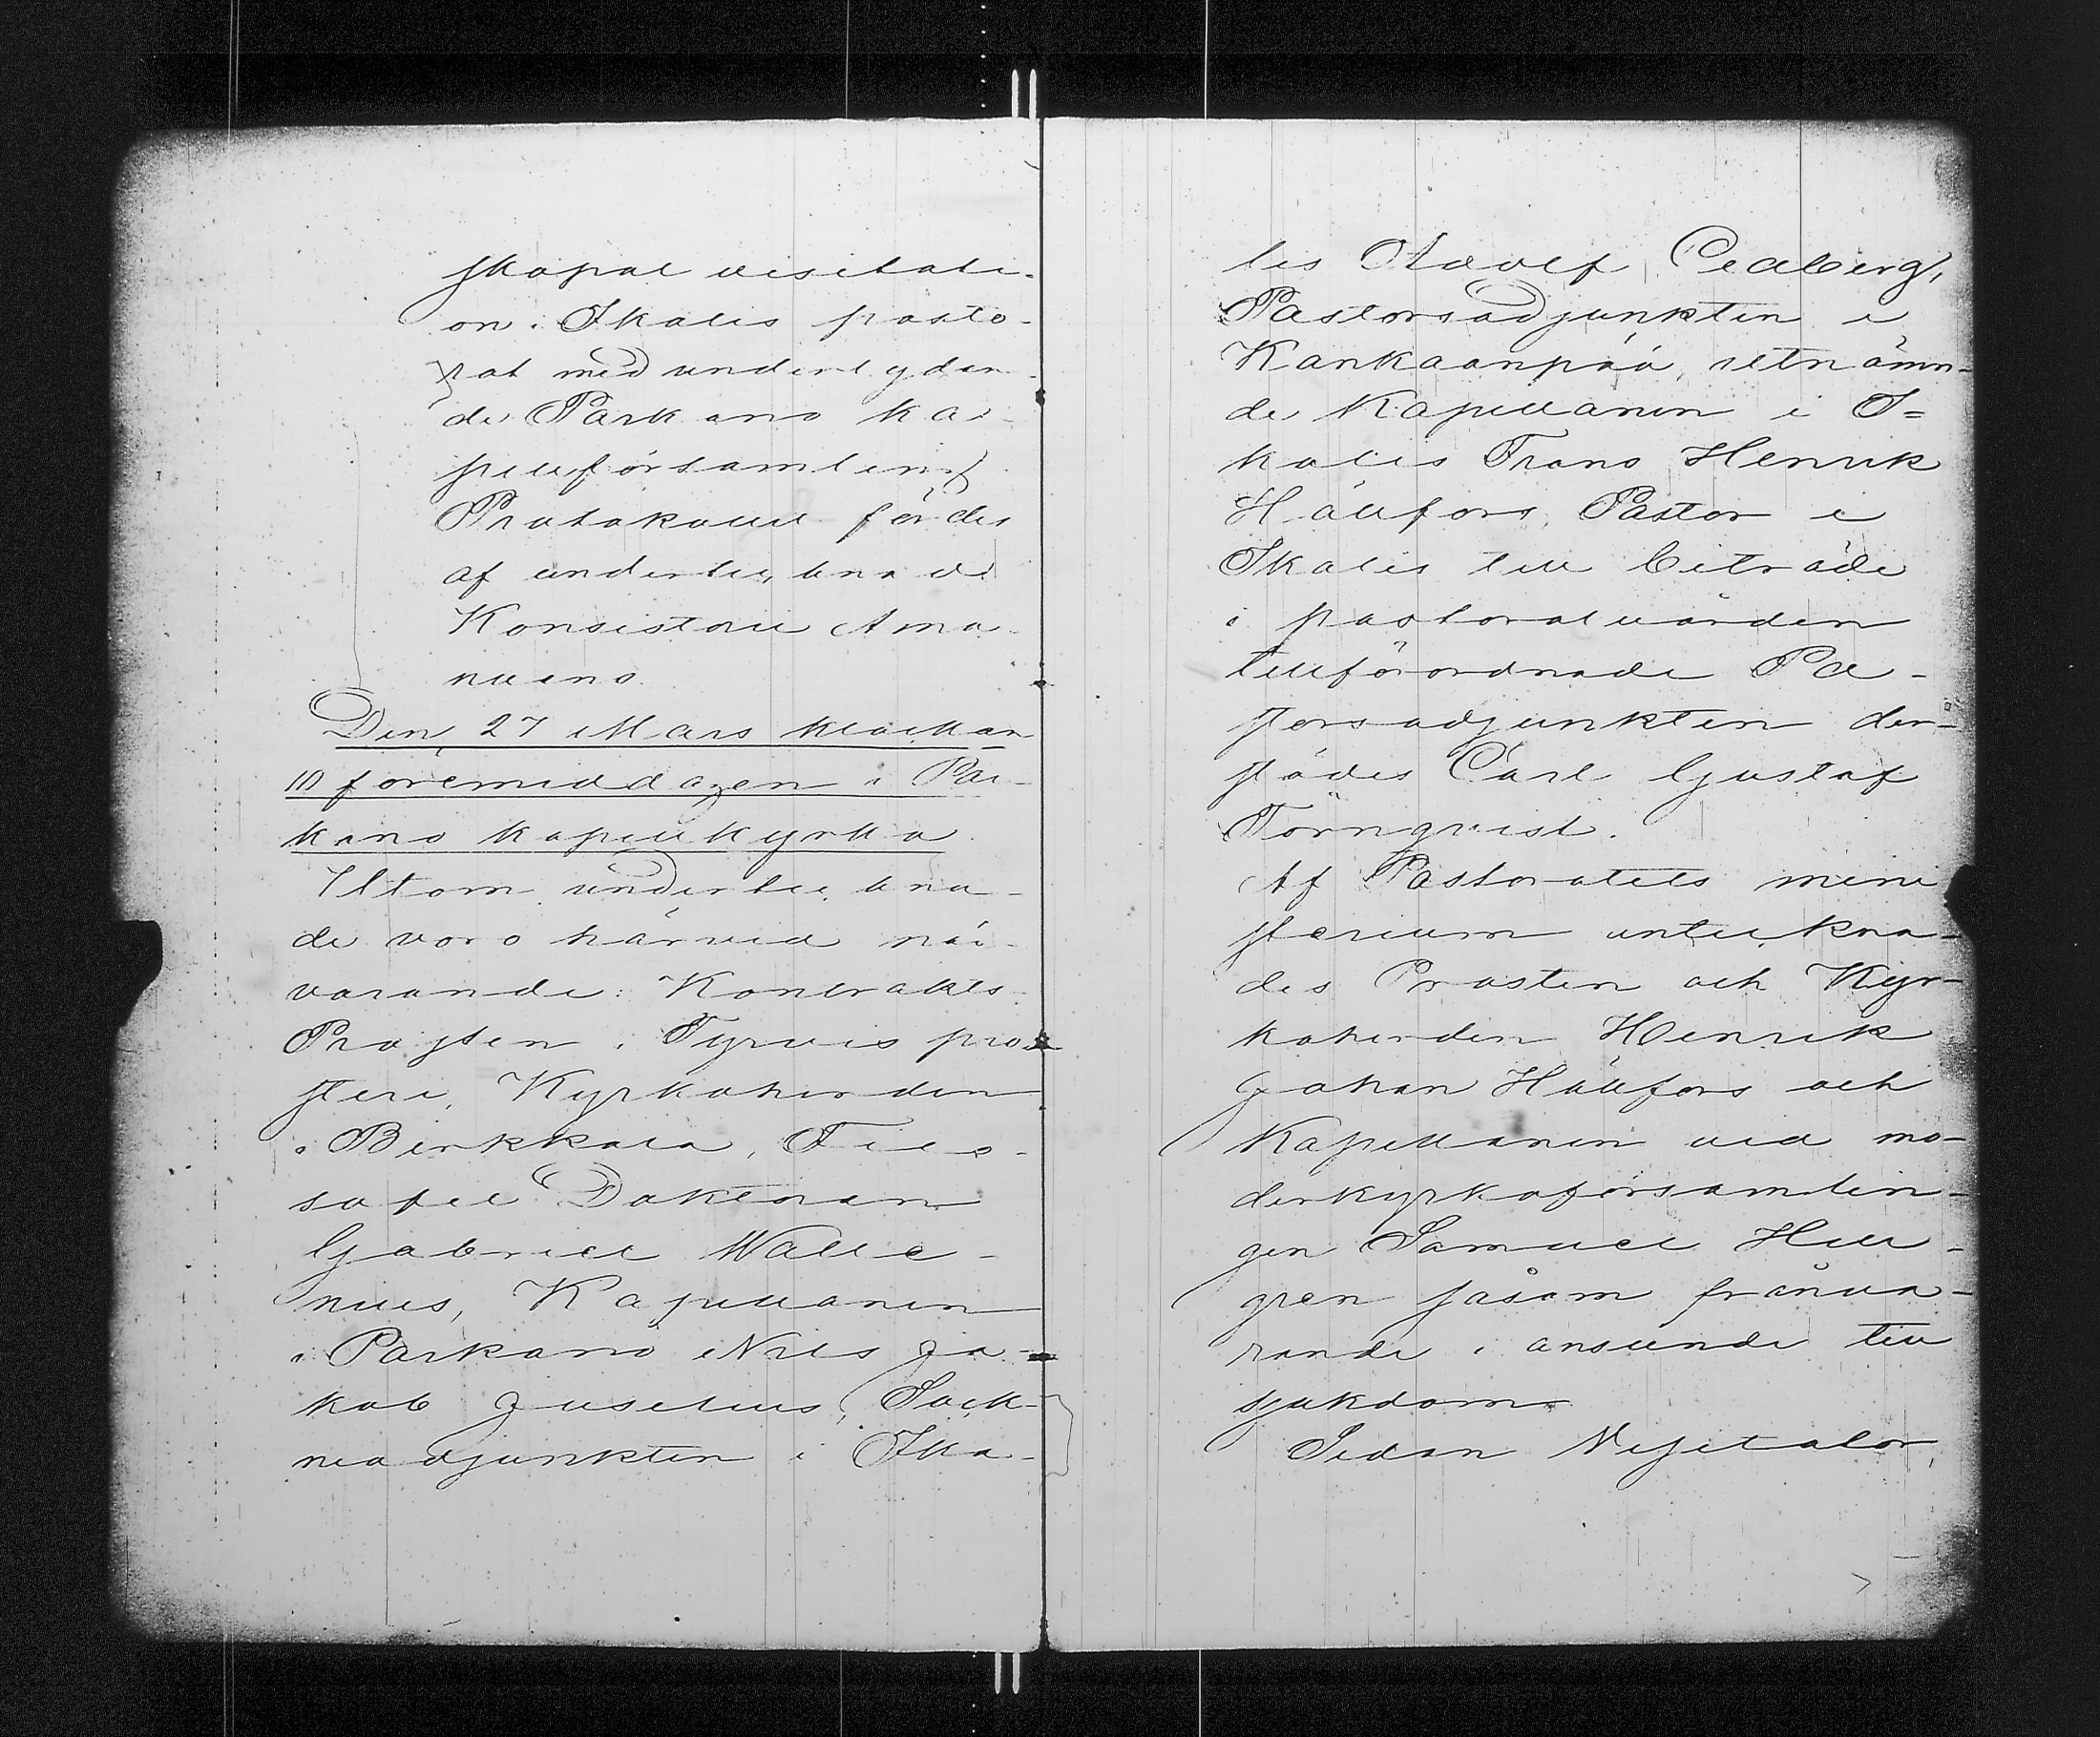 skopal visitati-
on i Ikalis pasto-
rat med underlydan-
de Parkano ka-
pellförsamling
Protokollet fördes
af undertecknade
Konsistorii Ama-
nuens.
Den 27 Mars klockan
10 föremiddagen i Par-
kano kapellkyrka
Utom undertecknade
de voro härvid när-
varande: Kontrakts
Prosten i Tyrvis pro-
steri, Kyrkoherden
i Birkkala, Filo-
sofie Doktoren
Gabriel Walle-
nius, Kapellanen
i Parkano Nils Ja-
kob Juselius, Sock-
neadjunkten i Ika-
lis Adolf Cedberg,
Pastorsadjunkten i
Kankaanpää, utnämn-
de Kapellanen i I=
kalis Frans Henrik
Hällfors, Pastor i
Ikalis till biträde
i pastoratvården
tillförordnade Pa-
storsadjunkten der-
städes Carl Gustaf
Törnqvist.
Af Pastoratets mini
sterium antecknades
des Prosten och Kyr-
koherden Henrik
Johan Hällfors och
Kapellanen vid mo-
derkyrkoförsamlin-
gen Samuel Hell-
gren såsom frånva-
rande i anseende till
sjukdom.
Sedan Visitator,